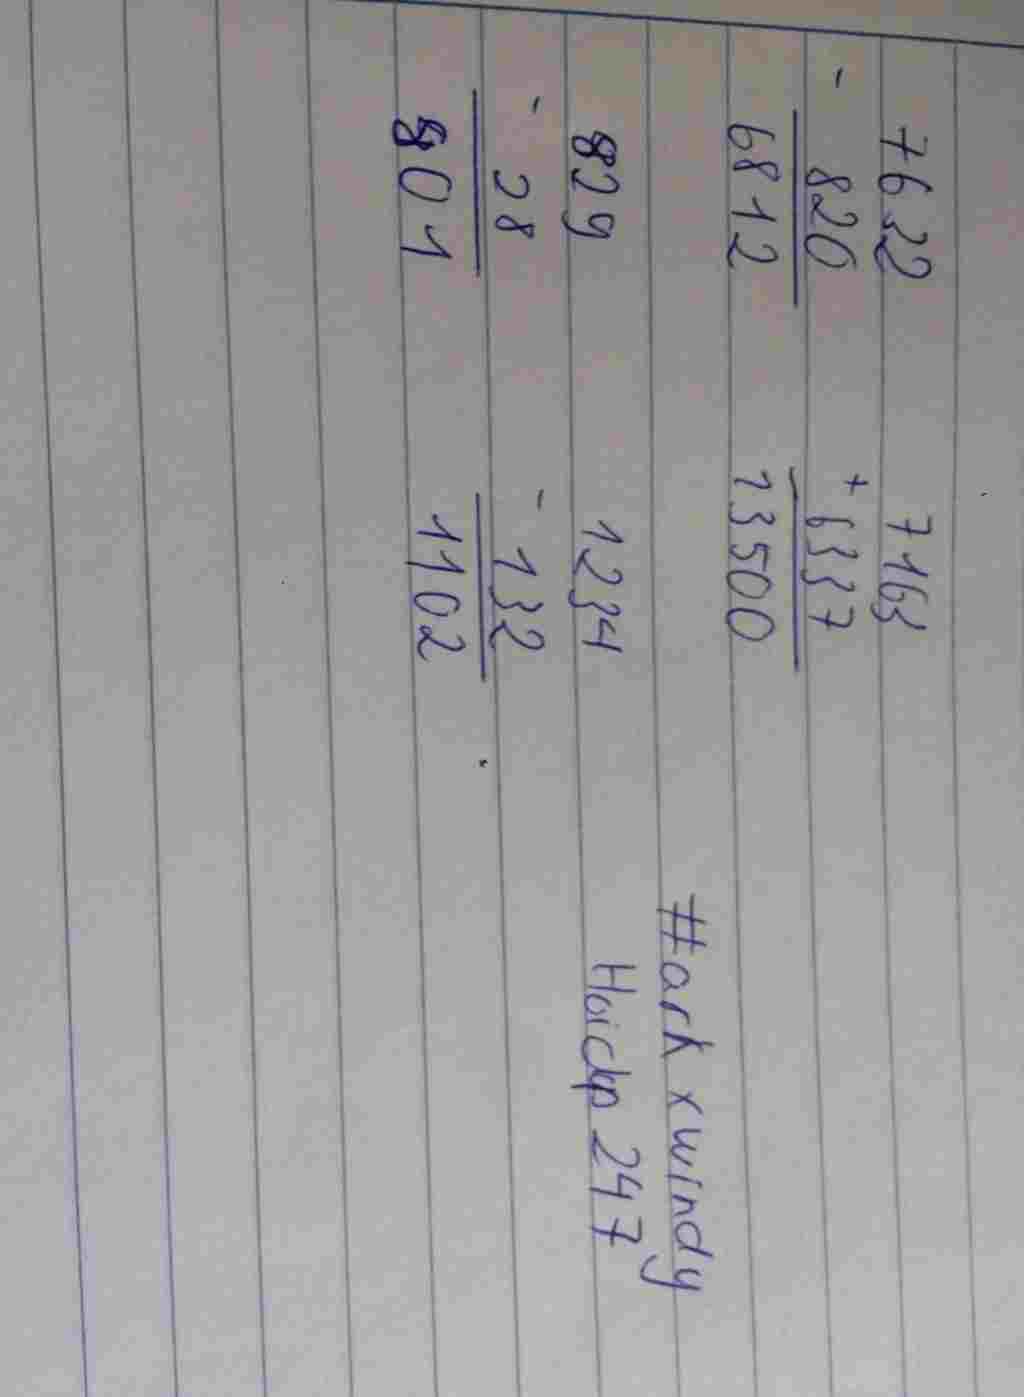 7632 7163
- 820 + 6337
6812 13500
829 1234
- 28 - 132
801 1102
#ark xwindy
247